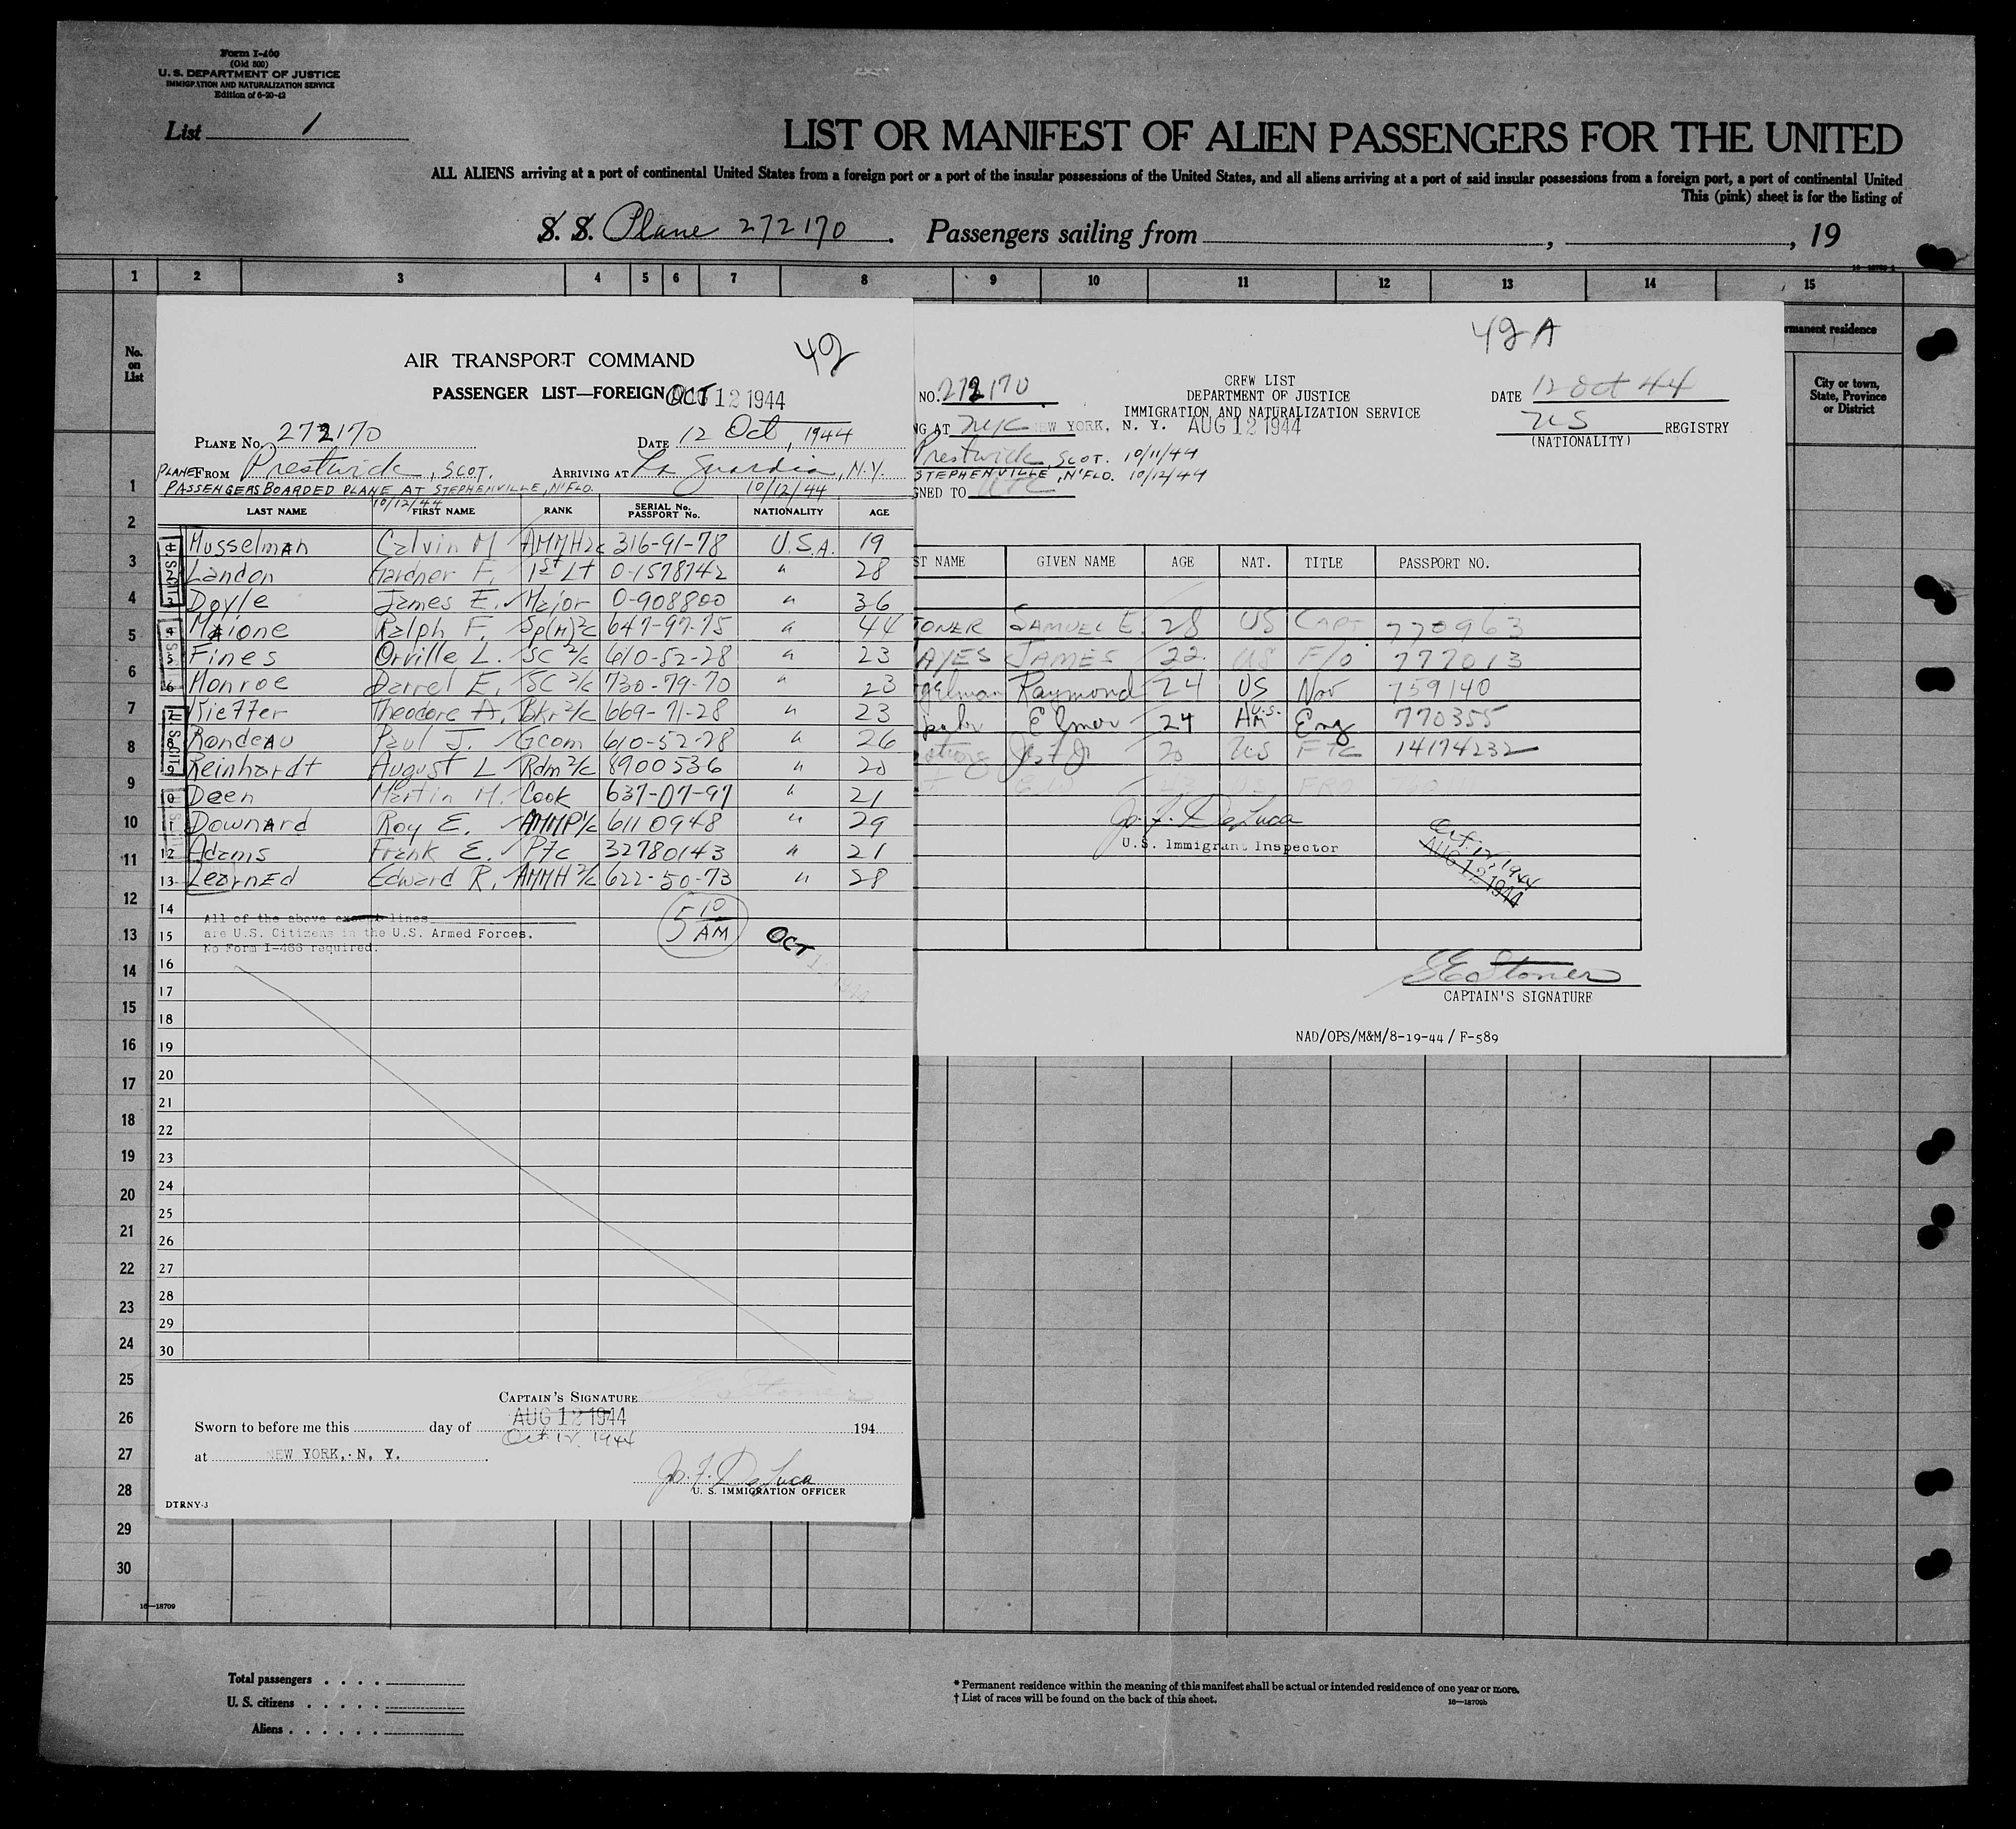 Form I-460
(Old 500)
U. S. DEPARTMENT OF JUSTICE
IMMIGRATION AND NATURALIZATION SERVICE
Edition of 6-20-42
List 1
LIST OR MANIFEST OF ALIEN PASSENGERS FOR THE UNITED
ALL ALIENS arriving at a port of continental United States from a foreign port or a port of the insular possessions of the United States, and all aliens arriving at a port of said insular possessions from a foreign port, a port of continental United
This (pink) sheet is for the listing of
S. S. Plane 272170. Passengers sailing from , , 19
1 2 3 4 5 6 7 8 9 10 11 12 13 14 15
No. on List
rmanent residence
City or town, State, Province or District
49
AIR TRANSPORT COMMAND
PASSENGER LIST—FOREIGN OCT 12 1944
PLANE NO. 272170 DATE 12 Oct, 1944
PLANE FROM Prestwick, SCOT. ARRIVING AT La Guardia, N.Y.
PASSENGERS BOARDED PLANE AT STEPHENVILLE, N'FLD. 10/12/44
10/12/44
LAST NAME FIRST NAME RANK SERIAL NO. PASSPORT NO. NATIONALITY AGE
Musselman Calvin M AMMH2c 316-91-78 U.S.A. 19
Landon Gardner F. 1st Lt 0-1578742 " 28
3 Doyle James E. Major 0-908800 " 36
4 Maione Ralph F. Sp(M)2c 647-97-75 " 44
5 Fines Orville L. SC 2/c 610-52-28 " 23
6 Monroe Darrel E. SC 2/c 730-79-70 " 23
7 Kieffer Theodore A. Bkr 2/c 669-71-28 " 23
8 Rondeau Paul J. Gcom 610-52-78 " 26
9 Reinhardt August L Rdm 2/c 8900536 " 20
10 Deen Martin M. Cook 637-07-97 " 21
11 Downard Roy E. AMMP1/c 6110948 " 29
12 Adams Frank E. Pfc 32780143 " 21
13 Learned Edward R. AMMH 2/c 622-50-73 " 28
14 All of the above except lines
15 are U.S. Citizens in the U.S. Armed Forces.
No Form I-466 required.
5 10 AM
OCT
16
17
18
19
20
21
22
23
24
25
26
27
28
29
30
CAPTAIN'S SIGNATURE
Sworn to before me this day of AUG 12 1944 194
Oct. 12, 1944
at NEW YORK, N. Y.
Jo. F. DeLuca
U. S. IMMIGRATION OFFICER
DTRNY-3
49 A
NO. 272170
CREW LIST
DEPARTMENT OF JUSTICE
IMMIGRATION AND NATURALIZATION SERVICE
DATE 12 Oct 44
NG AT NYC NEW YORK, N. Y. AUG 12 1944
US REGISTRY
(NATIONALITY)
Prestwick, SCOT. 10/11/44
STEPHENVILLE, N'FLD. 10/12/44
GNED TO ATC
ST NAME GIVEN NAME AGE NAT. TITLE PASSPORT NO.
TONER SAMUEL E. 28 US CAPT 770963
AYES JAMES 22 US F/O 777013
gelman Raymond 24 US Nav 759140
Elmer 24 U.S. Eng 770355
20 US 14174232
Jo. F. DeLuca
U.S. Immigrant Inspector
Oct. 12, 1944
AUG 12 1944
SE Stoner
CAPTAIN'S SIGNATURE
NAD/OPS/M&M/8-19-44 / F-589
1
2
3
4
5
6
7
8
9
10
11
12
13
14
15
16
17
18
19
20
21
22
23
24
25
26
27
28
29
30
16—18709
Total passengers . . . .
U. S. citizens . . . . .
Aliens . . . . . .
* Permanent residence within the meaning of this manifest shall be actual or intended residence of one year or more.
† List of races will be found on the back of this sheet.
16—18709b